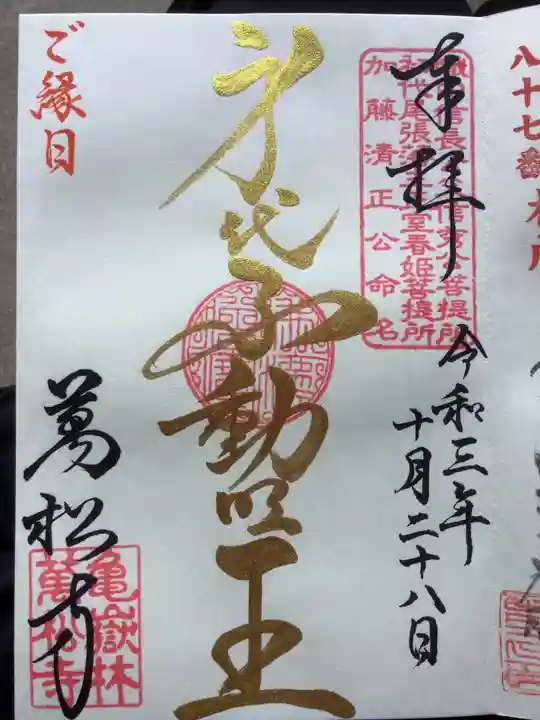 八十七番
奉拝
初代尾張藩主正室春姫菩提所
加藤清正公命名
令和三年
十月二十八日
身代不動明王
ご縁日
萬松寺
亀嶽林
萬松寺